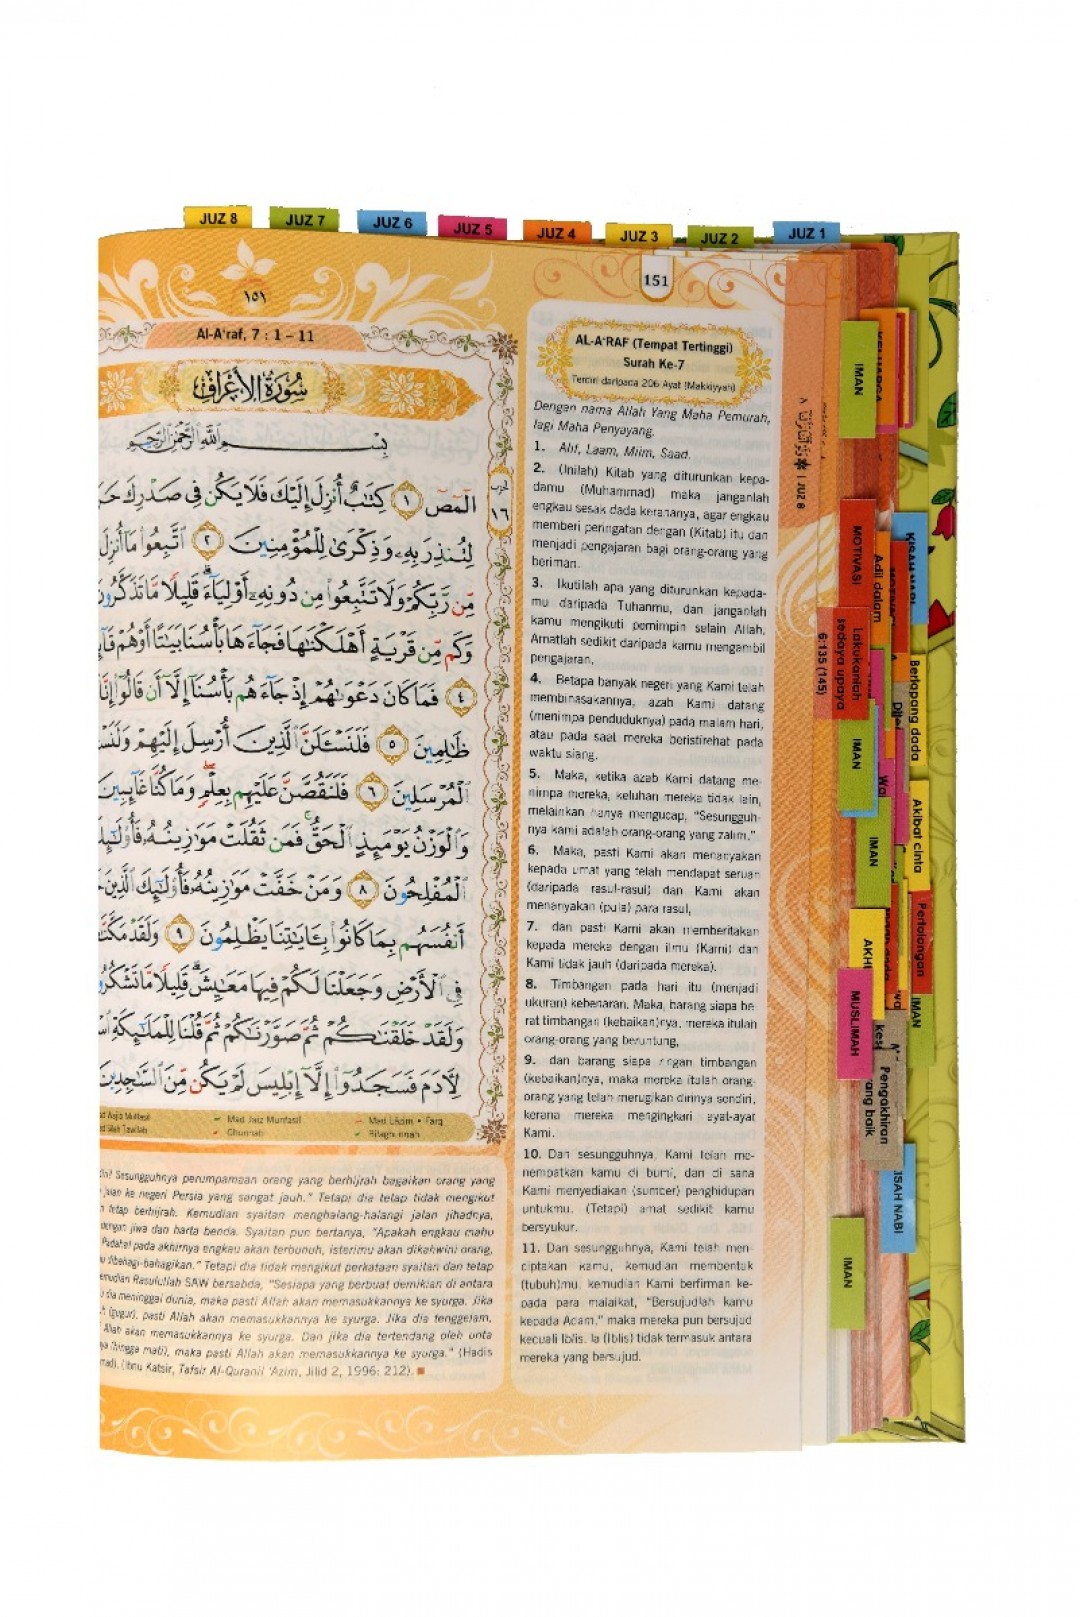 JUZ 8
JUZ 7
JUZ 6
JUZ 5
JUZ 4
JUZ 3
JUZ 2
JUZ 1
١٥١
151
Al-A'raf, 7 : 1 – 11
سُورَةُ الأَعْرَافِ
بِسْمِ اللَّهِ الرَّحْمَنِ الرَّحِيمِ
الٓمٓصٓ ١ كِتَٰبٌ أُنزِلَ إِلَيْكَ فَلَا يَكُن فِى صَدْرِكَ حَرَ
لِتُنذِرَ بِهِۦ وَذِكْرَىٰ لِلْمُؤْمِنِينَ ٢ ٱتَّبِعُوا۟ مَآ أُنزِلَ
مِّن رَّبِّكُمْ وَلَا تَتَّبِعُوا۟ مِن دُونِهِۦٓ أَوْلِيَآءَ ۗ قَلِيلًا مَّا تَذَكَّرُونَ
وَكَم مِّن قَرْيَةٍ أَهْلَكْنَٰهَا فَجَآءَهَا بَأْسُنَا بَيَٰتًا أَوْ هُمْ قَآ
٤ فَمَا كَانَ دَعْوَىٰهُمْ إِذْ جَآءَهُم بَأْسُنَآ إِلَّآ أَن قَالُوٓا۟ إِنَّا
ظَٰلِمِينَ ٥ فَلَنَسْـَٔلَنَّ ٱلَّذِينَ أُرْسِلَ إِلَيْهِمْ وَلَنَسْ
ٱلْمُرْسَلِينَ ٦ فَلَنَقُصَّنَّ عَلَيْهِم بِعِلْمٍ ۖ وَمَا كُنَّا غَآئِبِينَ
وَٱلْوَزْنُ يَوْمَئِذٍ ٱلْحَقُّ ۚ فَمَن ثَقُلَتْ مَوَٰزِينُهُۥ فَأُو۟لَٰٓئِكَ
ٱلْمُفْلِحُونَ ٨ وَمَنْ خَفَّتْ مَوَٰزِينُهُۥ فَأُو۟لَٰٓئِكَ ٱلَّذِينَ
أَنفُسَهُم بِمَا كَانُوا۟ بِـَٔايَٰتِنَا يَظْلِمُونَ ٩ وَلَقَدْ مَكَّنَّ
فِى ٱلْأَرْضِ وَجَعَلْنَا لَكُمْ فِيهَا مَعَٰيِشَ ۗ قَلِيلًا مَّا تَشْكُرُونَ
وَلَقَدْ خَلَقْنَٰكُمْ ثُمَّ صَوَّرْنَٰكُمْ ثُمَّ قُلْنَا لِلْمَلَٰٓئِكَةِ ٱسْ
لِـَٔادَمَ فَسَجَدُوٓا۟ إِلَّآ إِبْلِيسَ لَمْ يَكُن مِّنَ ٱلسَّٰجِدِينَ
حزب
١٦
Mad Jaiz Munfasil
Mad Lazim • Farq
Ghunnah
dia? Sesungguhnya perumpamaan orang yang berhijrah bagaikan orang yang
jalan ke negeri Persia yang sangat jauh." Tetapi dia tetap tidak mengikut
tetap berhijrah. Kemudian syaitan menghalang-halangi jalan jihadnya,
dengan jiwa dan harta benda. Syaitan pun bertanya, "Apakah engkau mahu
Padahal pada akhirnya engkau akan terbunuh, isterimu akan dikahwini orang,
dibahagi-bahagikan." Tetapi dia tidak mengikut perkataan syaitan dan tetap
emudian Rasulullah SAW bersabda, "Sesiapa yang berbuat demikian di antara
dia meninggal dunia, maka pasti Allah akan memasukkannya ke syurga. Jika
(gugur), pasti Allah akan memasukkannya ke syurga. Jika dia tenggelam,
Allah akan memasukkannya ke syurga. Dan jika dia tertendang oleh unta
(hingga mati), maka pasti Allah akan memasukkannya ke syurga." (Hadis
mad). (Ibnu Katsir, Tafsir Al-Quranil 'Azim, Jilid 2, 1996: 212).
AL-A'RAF (Tempat Tertinggi)
Surah Ke-7
Terdiri daripada 206 Ayat (Makkiyyah)
Dengan nama Allah Yang Maha Pemurah,
lagi Maha Penyayang.
1. Alif, Laam, Miim, Saad.
2. (Inilah) Kitab yang diturunkan kepa-
damu (Muhammad) maka janganlah
engkau sesak dada kerananya, agar engkau
memberi peringatan dengan (Kitab) itu dan
menjadi pengajaran bagi orang-orang yang
beriman.
3. Ikutilah apa yang diturunkan kepada-
mu daripada Tuhanmu, dan janganlah
kamu mengikuti pemimpin selain Allah.
Amatlah sedikit daripada kamu mengambil
pengajaran.
4. Betapa banyak negeri yang Kami telah
membinasakannya, azab Kami datang
(menimpa penduduknya) pada malam hari,
atau pada saat mereka beristirehat pada
waktu siang.
5. Maka, ketika azab Kami datang me-
nimpa mereka, keluhan mereka tidak lain,
melainkan hanya mengucap, "Sesungguh-
nya kami adalah orang-orang yang zalim."
6. Maka, pasti Kami akan menanyakan
kepada umat yang telah mendapat seruan
(daripada rasul-rasul) dan Kami akan
menanyakan (pula) para rasul,
7. dan pasti Kami akan memberitakan
kepada mereka dengan ilmu (Kami) dan
Kami tidak jauh (daripada mereka).
8. Timbangan pada hari itu (menjadi
ukuran) kebenaran. Maka, barang siapa be-
rat timbangan (kebaikan)nya, mereka itulah
orang-orang yang beruntung,
9. dan barang siapa ringan timbangan
(kebaikan)nya, maka mereka itulah orang-
orang yang telah merugikan dirinya sendiri,
kerana mereka mengingkari ayat-ayat
Kami.
10. Dan sesungguhnya, Kami telah me-
nempatkan kamu di bumi, dan di sana
Kami menyediakan (sumber) penghidupan
untukmu. (Tetapi) amat sedikit kamu
bersyukur.
11. Dan sesungguhnya, Kami telah men-
ciptakan kamu, kemudian membentuk
(tubuh)mu, kemudian Kami berfirman ke-
pada para malaikat, "Bersujudlah kamu
kepada Adam," maka mereka pun bersujud
kecuali Iblis. Ia (Iblis) tidak termasuk antara
mereka yang bersujud.
| JUZ 8
IMAN
KELUARGA
MOTIVASI
Adil dalam
KISAH NABI
Lakukanlah
sedaya upaya
6:135 (145)
Berlapang dada
IMAN
Akibat cinta
IMAN
Pertolongan
AKHL
IMAN
MUSLIMAH
Pengakhiran
yang baik
ISAH NABI
IMAN